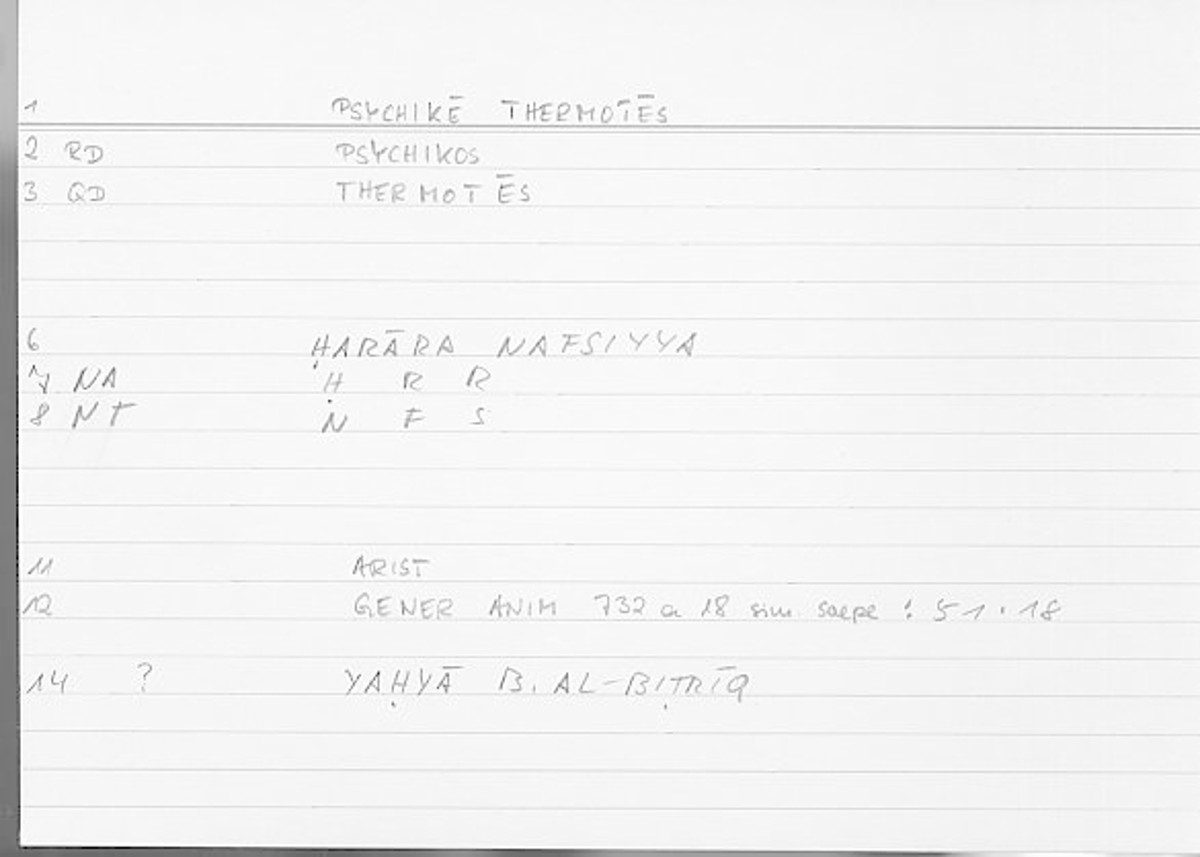 1 PSYCHIKĒ THERMOTĒS
2 RD PSYCHIKOS
3 QD THERMOTĒS
6 ḤARĀRA NAFSIYYA
7 NA Ḥ R R
8 NT N F S
11 ARIST
12 GENER ANIM 732 a 18 sim. saepe : 51.18
14 ? YAḤYĀ B. AL-BIṬRĪQ